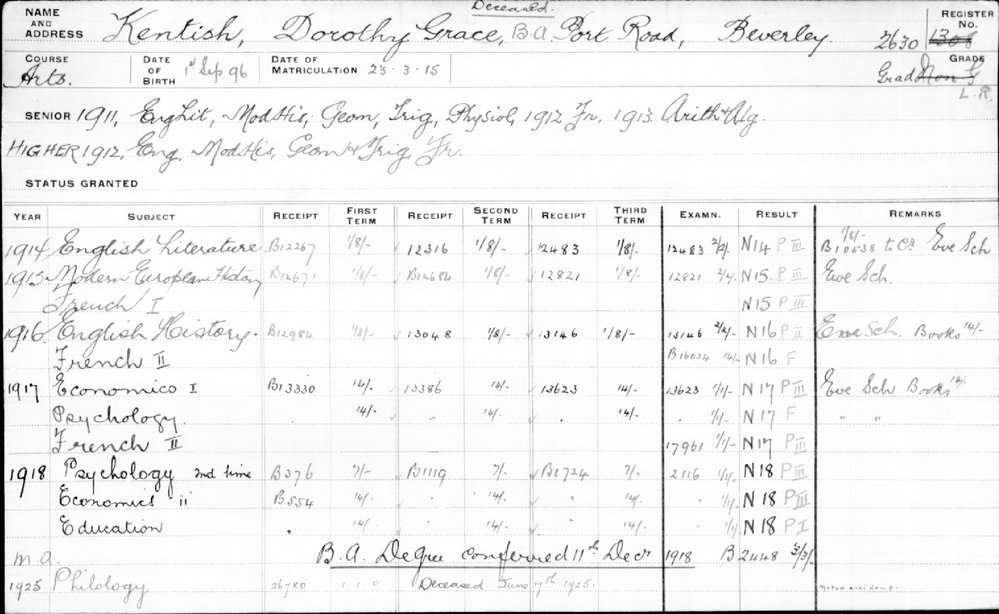 Deceased.
NAME AND ADDRESS Kentish, Dorothy Grace, B.A. Port Road, Beverley. REGISTER No. 2630 1308
COURSE Arts. DATE OF BIRTH 1st Sep 96 DATE OF MATRICULATION 23.3.15 GRADE Grad Non G
L.R.
SENIOR 1911, Eng Lit, Mod His, Geom, Trig, Physiol, 1912 Fr. 1913 Arith & Alg.
HIGHER 1912, Eng. Mod His, Geom & Trig, Fr.
STATUS GRANTED
YEAR SUBJECT RECEIPT FIRST TERM RECEIPT SECOND TERM RECEIPT THIRD TERM EXAMN. RESULT REMARKS
1914 English Literature B12267 1/8/- 12316 1/8/- 12483 1/8/- 12483 2/2/- N14 P III B10638 1/8/- to Cr Eve Sch
1915 Modern European History B12671 1/8/- B12682 1/8/- 12821 1/8/- 12821 N15 P III Eve Sch.
French I N15 P III
1916 English History B12984 1/8/- 13048 1/8/- 13146 1/8/- 13146 2/2/- N16 P II Eve Sch. Books 14/-
French II B16034 14/- N16 F
1917 Economics I B13330 14/- 13386 14/- 13623 14/- 13623 1/1/- N17 P III Eve Sch Books 14/-
Psychology. 14/- . 14/- . 14/- . 1/1/- N17 F " "
French II 17961 1/1/- N17 P III
1918 Psychology 2nd time B376 7/- B1119 7/- B1724 7/- 2116 1/1/- N18 P III
Economics ii B554 14/- " 14/- " 14/- 1/1/- N18 P III
Education . 14/- . 14/- . 14/- . 1/1/- N18 P I
M.A. B.A. Degree conferred 11th Decr 1918 B2448 3/3/-
1925 Philology 26780 1 1 0 Deceased June 7th 1925. Motor accident.